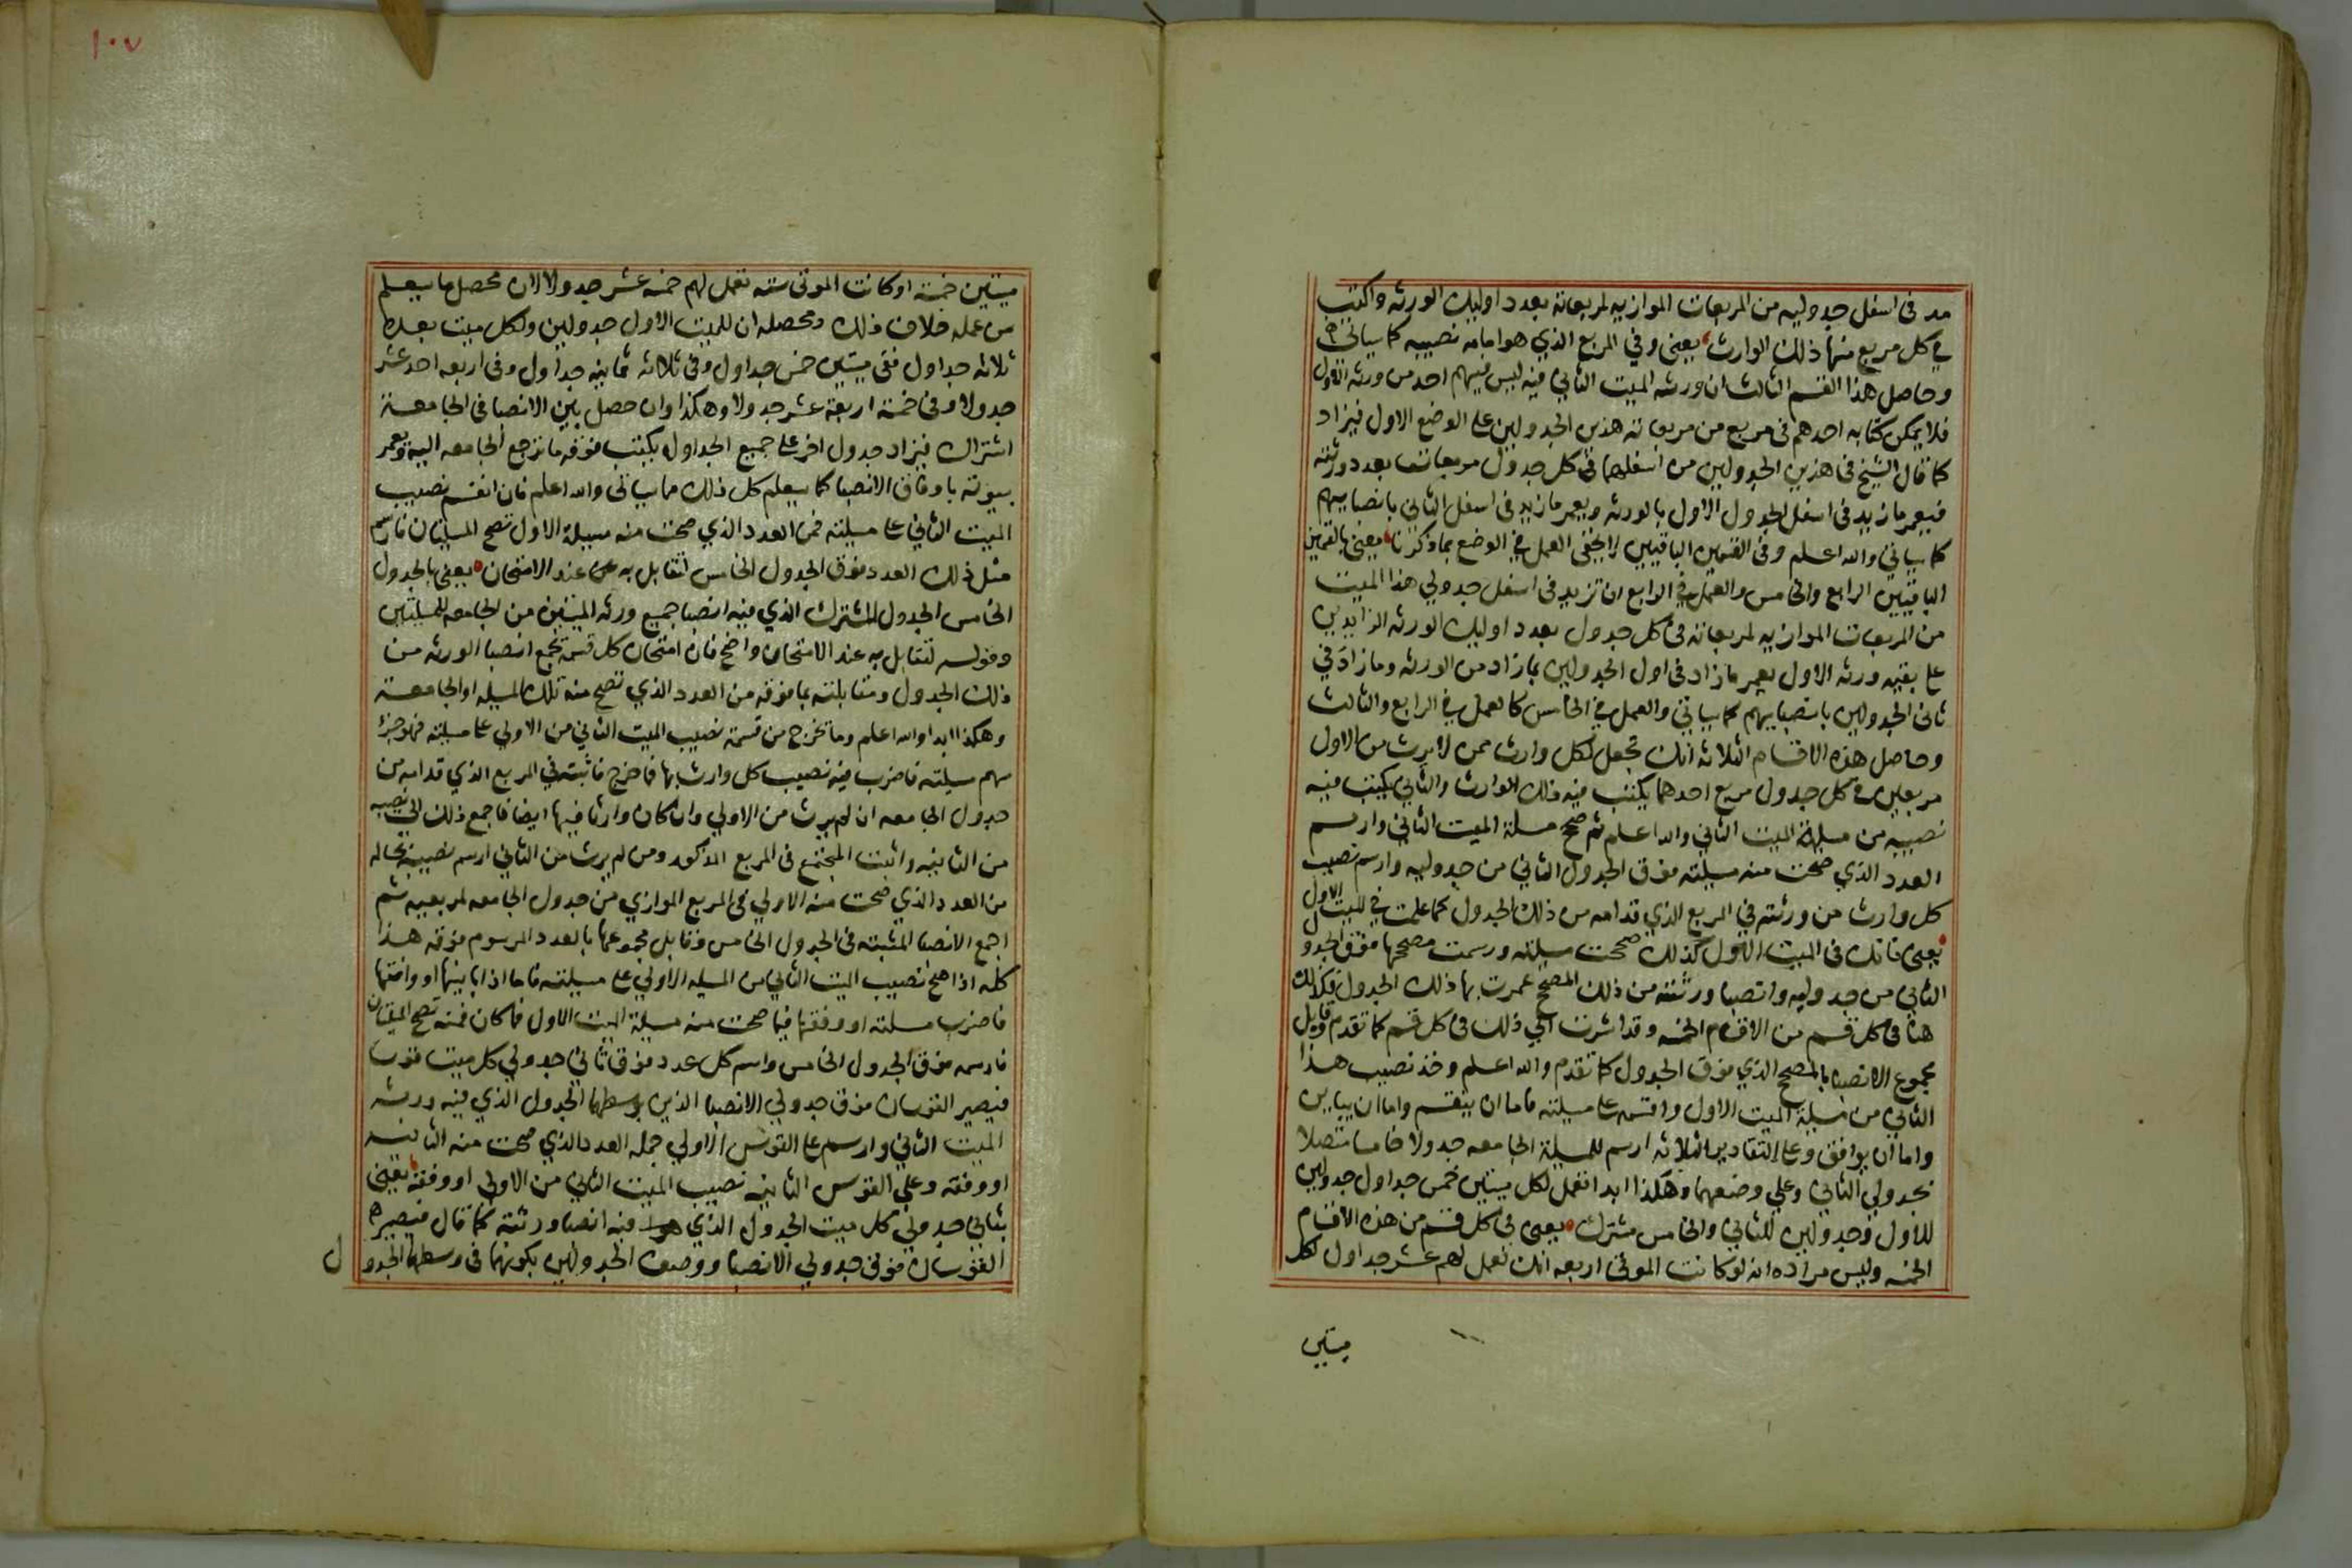 مد فى اسفل جدوليه من المربعات الموازيه لمربعاته بعدد اوليك الورثه واكتب
في كل مربع منها ذلك الوارث يعنى وفي المربع الذي هو امامه نصيبه كما سياتى
وحاصل هذا القسم الثالث ان ورثه الميت الثاني فيه ليس فيهم احد من ورثه الاول
فلا يمكن كتابه احدهم فى مربع من مربعاته هذين الجدولين على الوضع الاول فيزاد
كما قال الشيخ فى هذين الجدولين من اسفلهما فى كل جدول مربعات بعدد ورثته
فيعمر ما زيد فى اسفل الجدول الاول بالورثه ويعمر ما زيد فى اسفل الثاني بانصبايهم
كما سياتي والله اعلم وفى القسمين الباقيين لا يخفى العمل في الوضع بما ذكرنا يعنى بالقسمين
الباقيين الرابع والخامس والعمل في الرابع ان تزيد فى اسفل جدولي هذا الميت
من المربعات الموازيه لمربعاته فى كل جدول بعدد اوليك الورثه الزايدين
على بقيه ورثه الاول يعمر ما زاد فى اول الجدولين بما زاد من الورثه وما زاد في
ثانى الجدولين بانصبايهم كما سياتي والعمل في الخامس كالعمل في الرابع والثالث
وحاصل هذه الاقسام الثلاثه انك تجعل لكل وارث ممن لا يرث من الاول
مربعين فى كل جدول مربع احدهما يكتب فيه ذلك الوارث والثاني يكتب فيه
نصيبه من مسيلة الميت الثاني والله اعلم ثم صحح مسلة الميت الثاني وارسم
العدد الذي صحت منه مسيلته فوق الجدول الثاني من جدوليه وارسم نصيب
كل وارث من ورثته في المربع الذي قدامه من ذلك الجدول كما علمت في الميت الاول
يعنى فانك فى الميت الاول كذلك صححت مسيلته ورسمت مصححها فوق الجدول
الثاني من جدوليه وانصبا ورثته من ذلك المصحح عمرت بها ذلك الجدول فكذلك
هنا فى كل قسم من الاقسام الخمسه وقد اشرت الي ذلك فى كل قسم كما تقدم وقابل
مجموع الانصبا بالمصحح الذي فوق الجدول كما تقدم والله اعلم وخذ نصيب هذا
الثاني من مسيلة الميت الاول واقسمه على مسيلته فاما ان ينقسم واما ان يباين
واما ان يوافق وعلى التقادير الثلاثه ارسم للمسيلة الجامعه جدولا خامسا متصلا
بجدولي الثاني وعلي وضعهما وهكذا ابدا تعمل لكل ميتين خمس جداول جدولين
للاول وجدولين للثاني والخامس مشترك يعنى فى كل قسم من هذه الاقسام
الخمسه وليس مراده انه لو كانت الموتى اربعه انك تعمل لهم عشر جداول لكل
ميتين
١٠٧
ميتين خمسة او كانت الموتى سته تعمل لهم خمسه عشر جدولا لان محصل ما سيعلم
من عمله خلاف ذلك ومحصله ان للميت الاول جدولين ولكل ميت بعده
ثلاثه جداول ففى ميتين خمس جداول وفى ثلاثه ثمانيه جداول وفى اربعه احد عشر
جدولا وفى خمسة اربعة عشر جدولا وهكذا وان حصل بين الانصبا فى الجامعة
اشتراك فيزاد جدول اخر على جميع الجداول يكتب فوقه ما ترجع الجامعه اليه ويعمر
بيوته باوفاق الانصبا كما سيعلم كل ذلك مما سياتى والله اعلم فان انقسم نصيب
الميت الثاني على مسيلته فمن العدد الذي صحت منه مسيلة الاول تصح المسيلتان فارسم
مثل ذلك العدد فوق الجدول الخامس لتقابل به عند الامتحان يعنى بالجدول
الخامس الجدول المشترك الذي فيه انصبا جميع ورثه الميتين من الجامعه للمسيلتين
وقوله لتقابل به عند الامتحان واضح فان امتحان كل قسمة بجمع انصبا الورثه من
ذلك الجدول ومقابلته بما فوقه من العدد الذي تصح منه تلك المسيله او الجامعة
وهكذا ابدا والله اعلم وما تخرج من قسمة نصيب الميت الثاني من الاولي على مسيلته فهو جزء
سهم مسيلته فاضرب فيه نصيب كل وارث بها فما خرج فاثبته في المربع الذي قدامه من
جدول الجامعه ان لم يرث من الاولي وان كان وارثا فيها ايضا فاجمع ذلك الي نصيبه
من الثانيه واثبت المجتمع فى المربع المذكور ومن لم يرث من الثاني ارسم نصيبه بحاله
من العدد الذي صحت منه الاولي فى المربع الموازي من جدول الجامعه لمربعيه ثم
اجمع الانصبا المثبته فى الجدول الخامس وقابل مجموعها بالعدد المرسوم فوقه هذا
كله اذا صح نصيب الميت الثاني من المسيله الاولي على مسيلته فاما اذا باينها او وافقها
فاضرب مسلته او وفقها فيما صحت منه مسيلة الميت الاول فما كان فمنه تصح المسيلتان
فارسمه فوق الجدول الخامس وارسم كل عدد فوق ثاني جدولي كل ميت قوسا
فيصير القوسان فوق جدولي الانصبا الذين يوسطهما الجدول الذي فيه ورثه
الميت الثاني وارسم على القوس الاولي جمله العدد الذي صحت منه الثانيه
او وفقه وعلي القوس الثانيه نصيب الميت الثاني من الاولي او وفقه يعنى
بثاني جدولي كل ميت الجدول الذي فيه انصبا ورثته كما قال فيصير
القوسان فوق جدولي الانصبا ووصف الجدولين بكونهما فى وسطهما الجدول